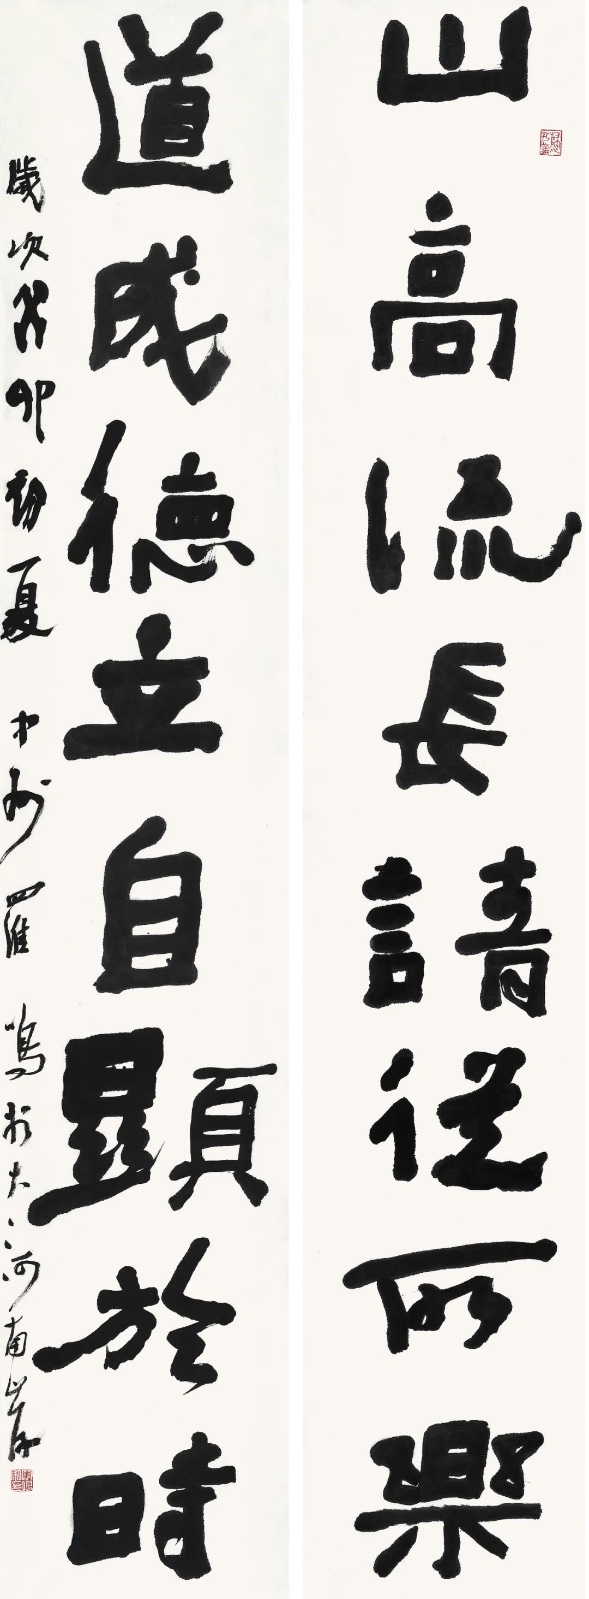 山高流長請從所樂
道成德立自顯於時
歲次癸卯初夏 中州羅鳴於大河南岸